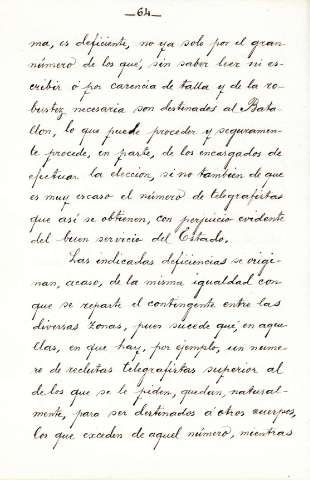 —64—
ma, es deficiente, no ya solo por el gran
número de los que, sin saber leer ni es-
cribir ó por carencia de talla y de la ro-
bustez necesaria son destinados al Bata-
llon, lo que puede proceder y seguramen-
te procede, en parte, de los encargados de
efectuar la eleccion, si no tambien de que
es muy escaso el número de telegrafistas
que así se obtienen, con perjuicio evidente
del buen servicio del Estado.
Las indicadas deficiencias se origi-
nan, acaso, de la misma igualdad con
que se reparte el contingente entre las
diversas zonas, pues sucede que, en aque-
llas, en que hay, por ejemplo, un núme-
ro de reclutas telegrafistas superior al
de los que se le piden, quedan, natural-
mente, para ser destinados á otros cuerpos,
los que exceden de aquel número, mientras